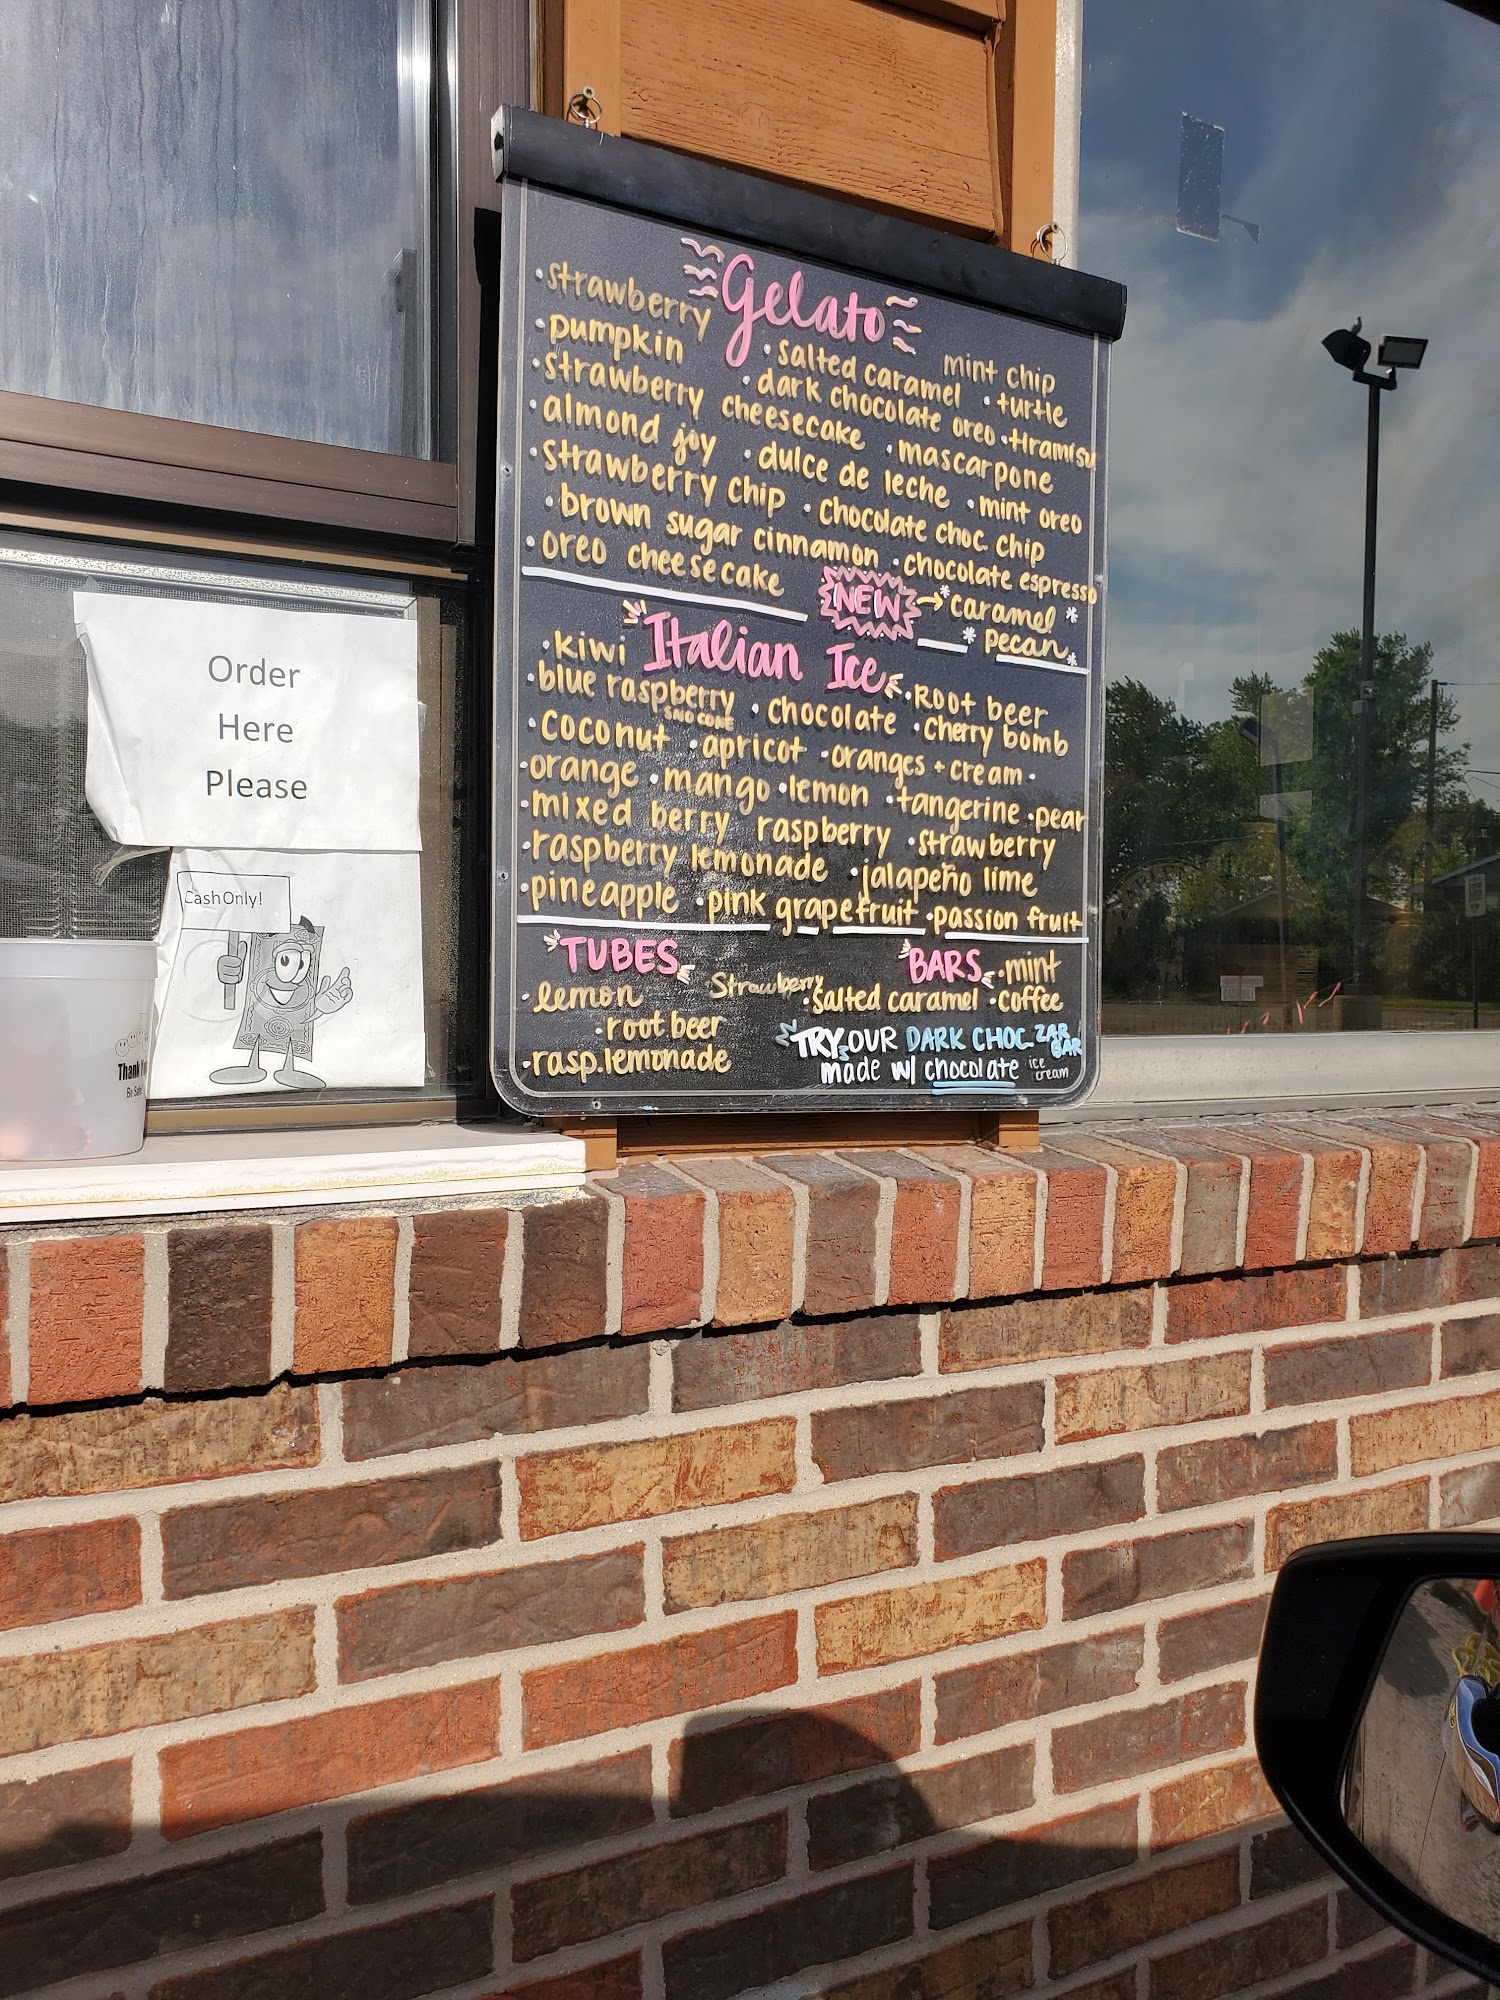 Gelato
• strawberry
mint chip
• pumpkin • salted caramel • turtle
• strawberry cheesecake • dark chocolate oreo • tiramisu
• almond joy • dulce de leche • mascarpone
• strawberry chip • chocolate choc. chip • mint oreo
• brown sugar cinnamon • chocolate espresso
• oreo cheesecake NEW → * caramel *
* pecan *
Italian Ice
• kiwi • Root beer
• blue raspberry • chocolate • cherry bomb
SNO CONE
• coconut • apricot • oranges + cream •
• orange • mango • lemon • tangerine • pear
• mixed berry raspberry • strawberry
• raspberry lemonade • jalapeño lime
• pineapple • pink grapefruit • passion fruit
TUBES
• lemon Strawberry
• root beer
• rasp. lemonade
BARS • mint
• salted caramel • coffee
TRY OUR DARK CHOC. ZAR BAR
made w/ chocolate ice cream
Order
Here
Please
Cash Only!
Thank You
Be Safe